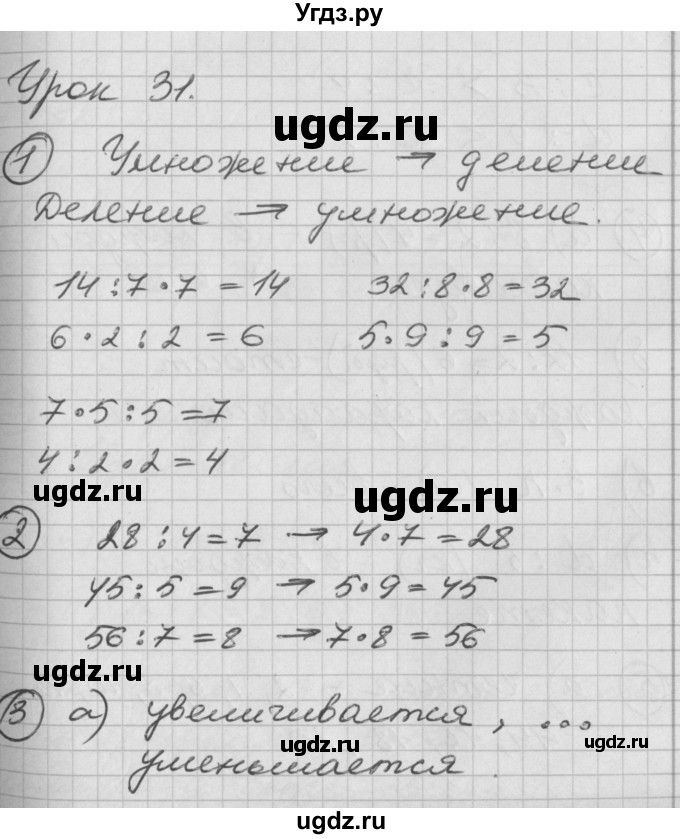 Угдз.ру
Урок 31.
ugdz.ru
1 Умножение → делении
Деление → умножение.
14:7·7=14 32:8·8=32
6·2:2=6 5·9:9=5
7·5:5=7
4:2·2=4
ugdz.ru ugdz.ru
2 28:4=7 → 4·7=28
45:5=9 → 5·9=45
56:7=8 → 7·8=56
ugdz.ru
3 а) увеличивается, ...
ugdz.ru ugdz.ru
уменьшается.
ugdz.ru